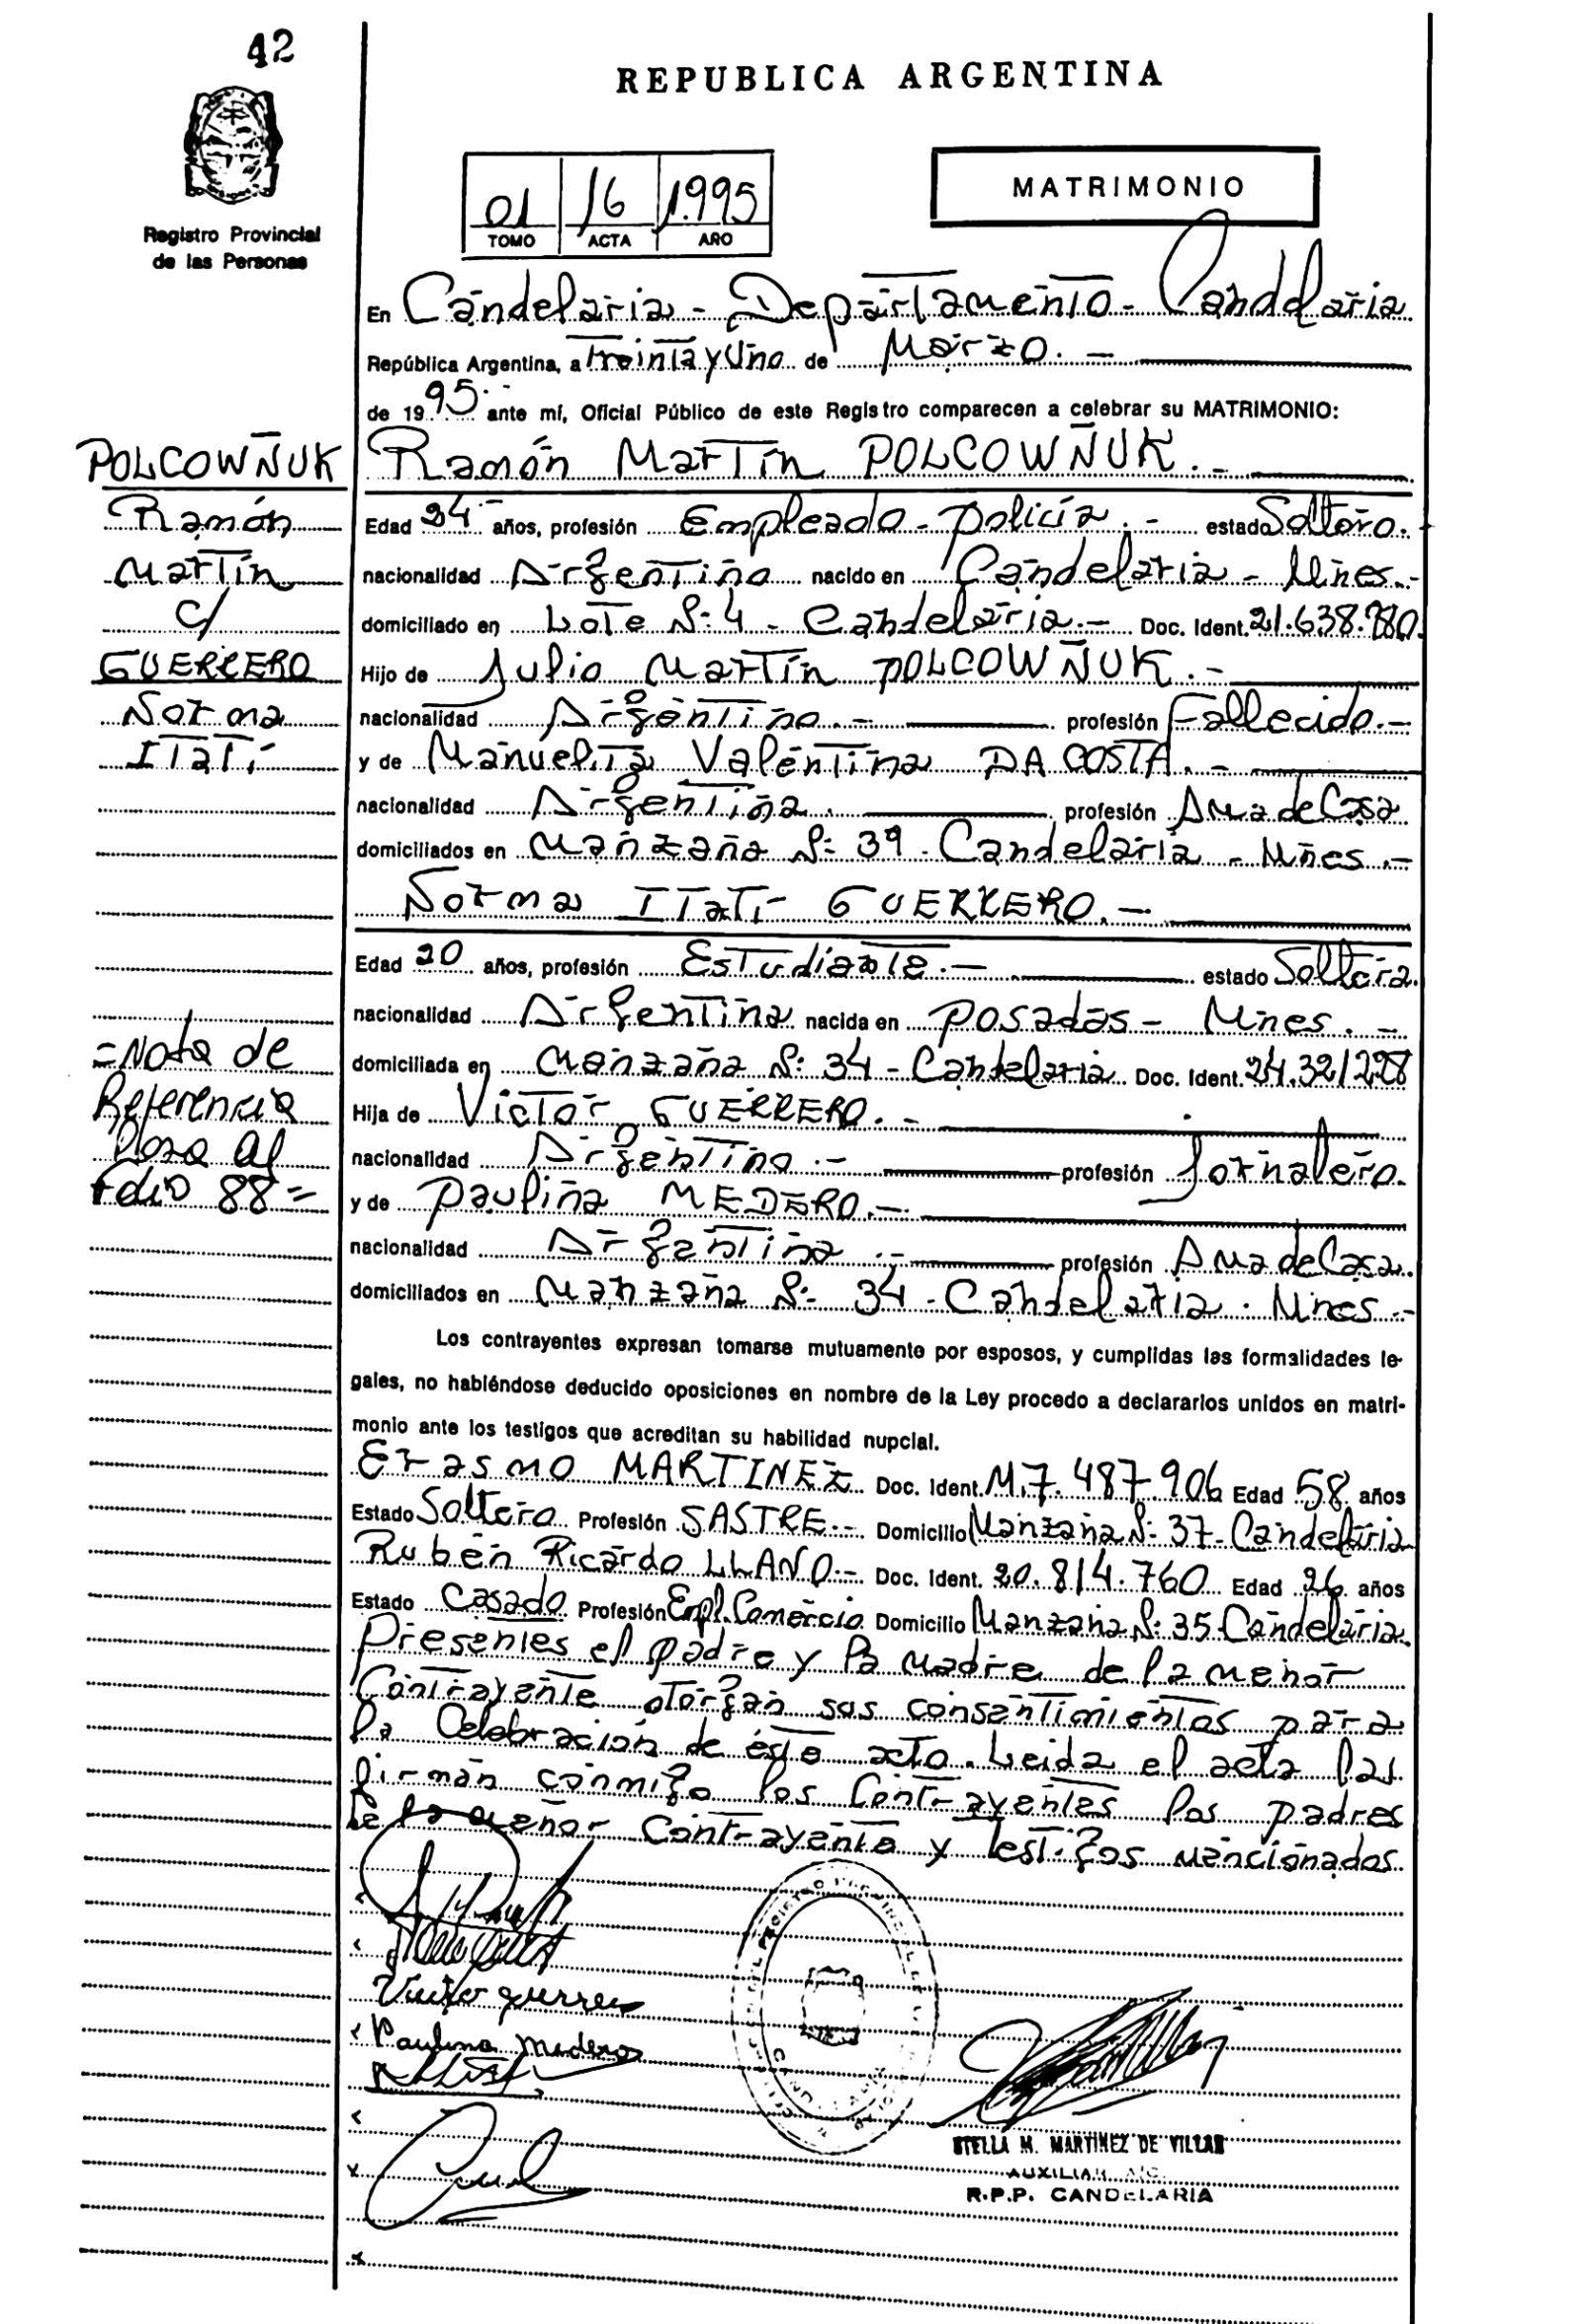 42
REPUBLICA ARGENTINA
Registro Provincial
de las Personas
01 16 1.995
TOMO ACTA AÑO
MATRIMONIO
En Candelaria - Departamento - Candelaria
República Argentina, a Treinta y Uno de Marzo. -
de 1995.- ante mí, Oficial Público de este Registro comparecen a celebrar su MATRIMONIO:
POLCOWÑUK
Ramón
Martín
c/
GUERRERO
Norma
Itatí
=Nota de
Referencia
Pasa al
Folio 88=
Ramón Martín POLCOWÑUK. -
Edad 24 años, profesión Empleado - Policía. - estado Soltero. -
nacionalidad Argentino nacido en Candelaria - Mnes. -
domiciliado en Lote Nº 4 - Candelaria. - Doc. Ident. 21.638.780.
Hijo de Julio Martín POLCOWÑUK. -
nacionalidad Argentino. - profesión Fallecido. -
y de Manuelita Valentina DA COSTA. -
nacionalidad Argentina. profesión Ama de Casa
domiciliados en Manzana Nº 39 - Candelaria - Mnes. -
Norma Itatí GUERRERO. -
Edad 20 años, profesión Estudiante. - estado Soltera.
nacionalidad Argentina nacida en Posadas - Mnes. -
domiciliada en Manzana Nº 34 - Candelaria Doc. Ident. 24.321228
Hija de Victor GUERRERO. -
nacionalidad Argentino. - profesión Jornalero.
y de Paulina MEDERO. -
nacionalidad Argentina. - profesión Ama de Casa.
domiciliados en Manzana Nº 34 - Candelaria. Mnes. -
Los contrayentes expresan tomarse mutuamente por esposos, y cumplidas las formalidades le-
gales, no habiéndose deducido oposiciones en nombre de la Ley procedo a declararlos unidos en matri-
monio ante los testigos que acreditan su habilidad nupcial.
Erasmo MARTINEZ Doc. Ident. M.7.487.906 Edad 58 años
Estado Soltero Profesión SASTRE. - Domicilio Manzana Nº 37 - Candelaria
Rubén Ricardo LLANO. - Doc. Ident. 20.814.760 Edad 26 años
Estado Casado Profesión Empl. Comercio Domicilio Manzana Nº 35 Candelaria.
Presentes el padre y la madre de la menor
Contrayente otorgan sus consentimientos para
la Celebración de éste acto. Leida el acta las
firman conmigo los Contrayentes los padres
de la menor Contrayente y testigos mencionados
Victor guerrero
Paulina Medero
STELLA M. MARTINEZ DE VILLAR
AUXILIAR
R.P.P. CANDELARIA